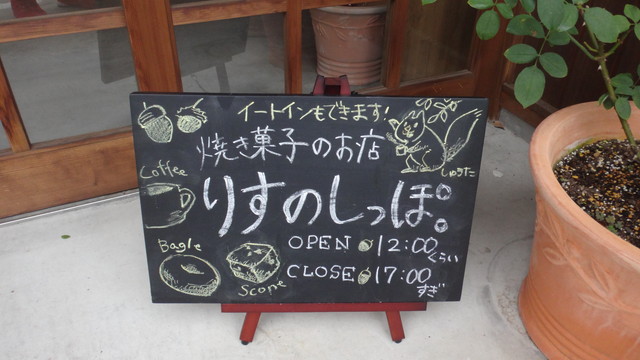 イートインもできます!
焼き菓子のお店
Coffee
りすのしっぽ。
OPEN 12:00
くらい
Bagle
CLOSE 17:00
すぎ
Scone